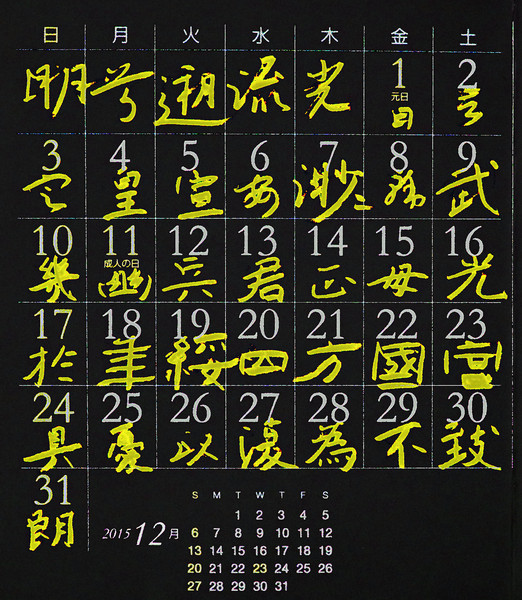 日 月 火 水 木 金 土
明 兮 遡 流 光 1 2
元日
日 言
3 4 5 6 7 8 9
皇 宣 武
10 11 12 13 14 15 16
成人の日
幾 幽 兵 君 正 母 光
17 18 19 20 21 22 23
於 年 綏 四 方 國 宣
24 25 26 27 28 29 30
具 憂 以 優 為 不
31
朗
2015 12月
S M T W T F S
1 2 3 4 5
6 7 8 9 10 11 12
13 14 15 16 17 18 19
20 21 22 23 24 25 26
27 28 29 30 31